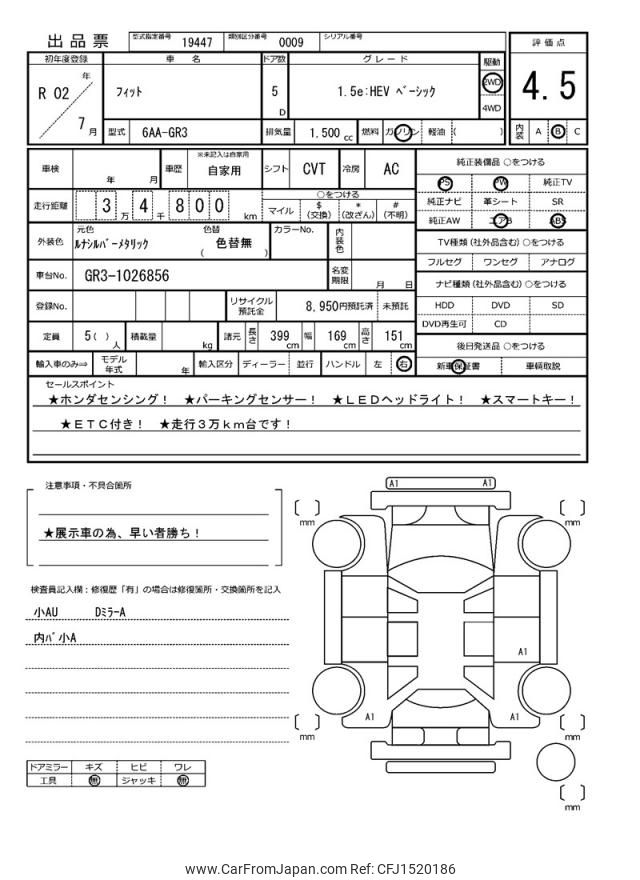 出品票 型式指定番号 19447 類別区分番号 0009 シリアル番号
評価点
4.5
内装 A B C
初年度登録 車名 ドア数 グレード 駆動
R 02 年 7月
フィット 5 D 1.5e:HEV ﾍﾞｰｼｯｸ 2WD 4WD
型式 6AA-GR3 排気量 1.500 cc 燃料 ガソリン 軽油 ( )
車検 年 月 車歴 ※未記入は自家用 自家用 シフト CVT 冷房 AC
走行距離 3万 4千 800 km
○をつける
マイル $(交換) *(改ざん) #(不明)
外装色 元色 ﾙﾅｼﾙﾊﾞｰﾒﾀﾘｯｸ 色替 ( 色替無 ) カラーNo. 内装色
車台No. GR3-1026856 名変期限 月 日
登録No. リサイクル預託金 8,950円預託済 未預託
定員 5( )人 積載量 kg 諸元 長さ 399 cm 幅 169 cm 高さ 151 cm
輸入車のみ⇒ モデル年式 年 輸入区分 ディーラー 並行 ハンドル 左 右
純正装備品 ○をつける
PS PW 純正TV
純正ナビ 革シート SR
純正AW エアB ABS
TV種類(社外品含む) ○をつける
フルセグ ワンセグ アナログ
ナビ種類(社外品含む) ○をつける
HDD DVD SD
DVD再生可 CD
後日発送品 ○をつける
新車保証書 車輌取説
セールスポイント
★ホンダセンシング! ★パーキングセンサー! ★LEDヘッドライト! ★スマートキー!
★ETC付き! ★走行3万km台です!
注意事項・不具合箇所
★展示車の為、早い者勝ち!
検査員記入欄:修復歴「有」の場合は修復箇所・交換箇所を記入
小AU DﾐﾗｰA
内ﾊﾞ小A
ドアミラー キズ ヒビ ワレ
工具 無 ジャッキ 無
A1 A1
mm mm
A1
A1 A1
mm mm
mm
www.CarFromJapan.com Ref: CFJ1520186